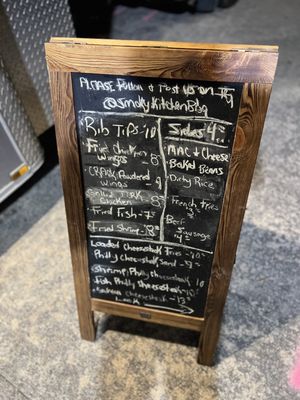 PLEASE Follow & Post us on IG
@smokykitchenBBQ
Rib Tips -10
Fried Chicken wings - 8
Powdered wings - 9
Chicken - 8
Fried Fish - 7
Fried Shrimp - 8
Sides 4
MAC & Cheese
Baked Beans
Dirty Rice
French Fries
Beef Sausage
Loaded Cheesesteak Fries - 10
Philly Cheesesteak Sand - 9
Shrimp Philly Cheesesteak - 10
Fish Philly Cheesesteak - 10
Cheesesteak - 13
Look